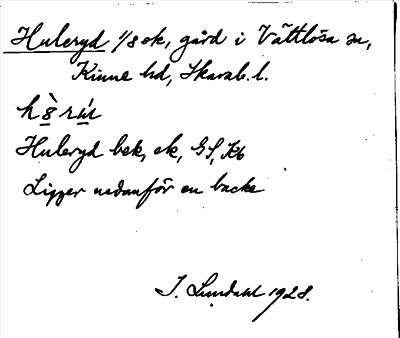 Huleryd 1/8 sk, gård i Vättlösa sn,
Kinne hd, Skarab. l.
Huleryd bek, ek, GS, Kb
Ligger nedanför en backe
I. Lundahl 1928.